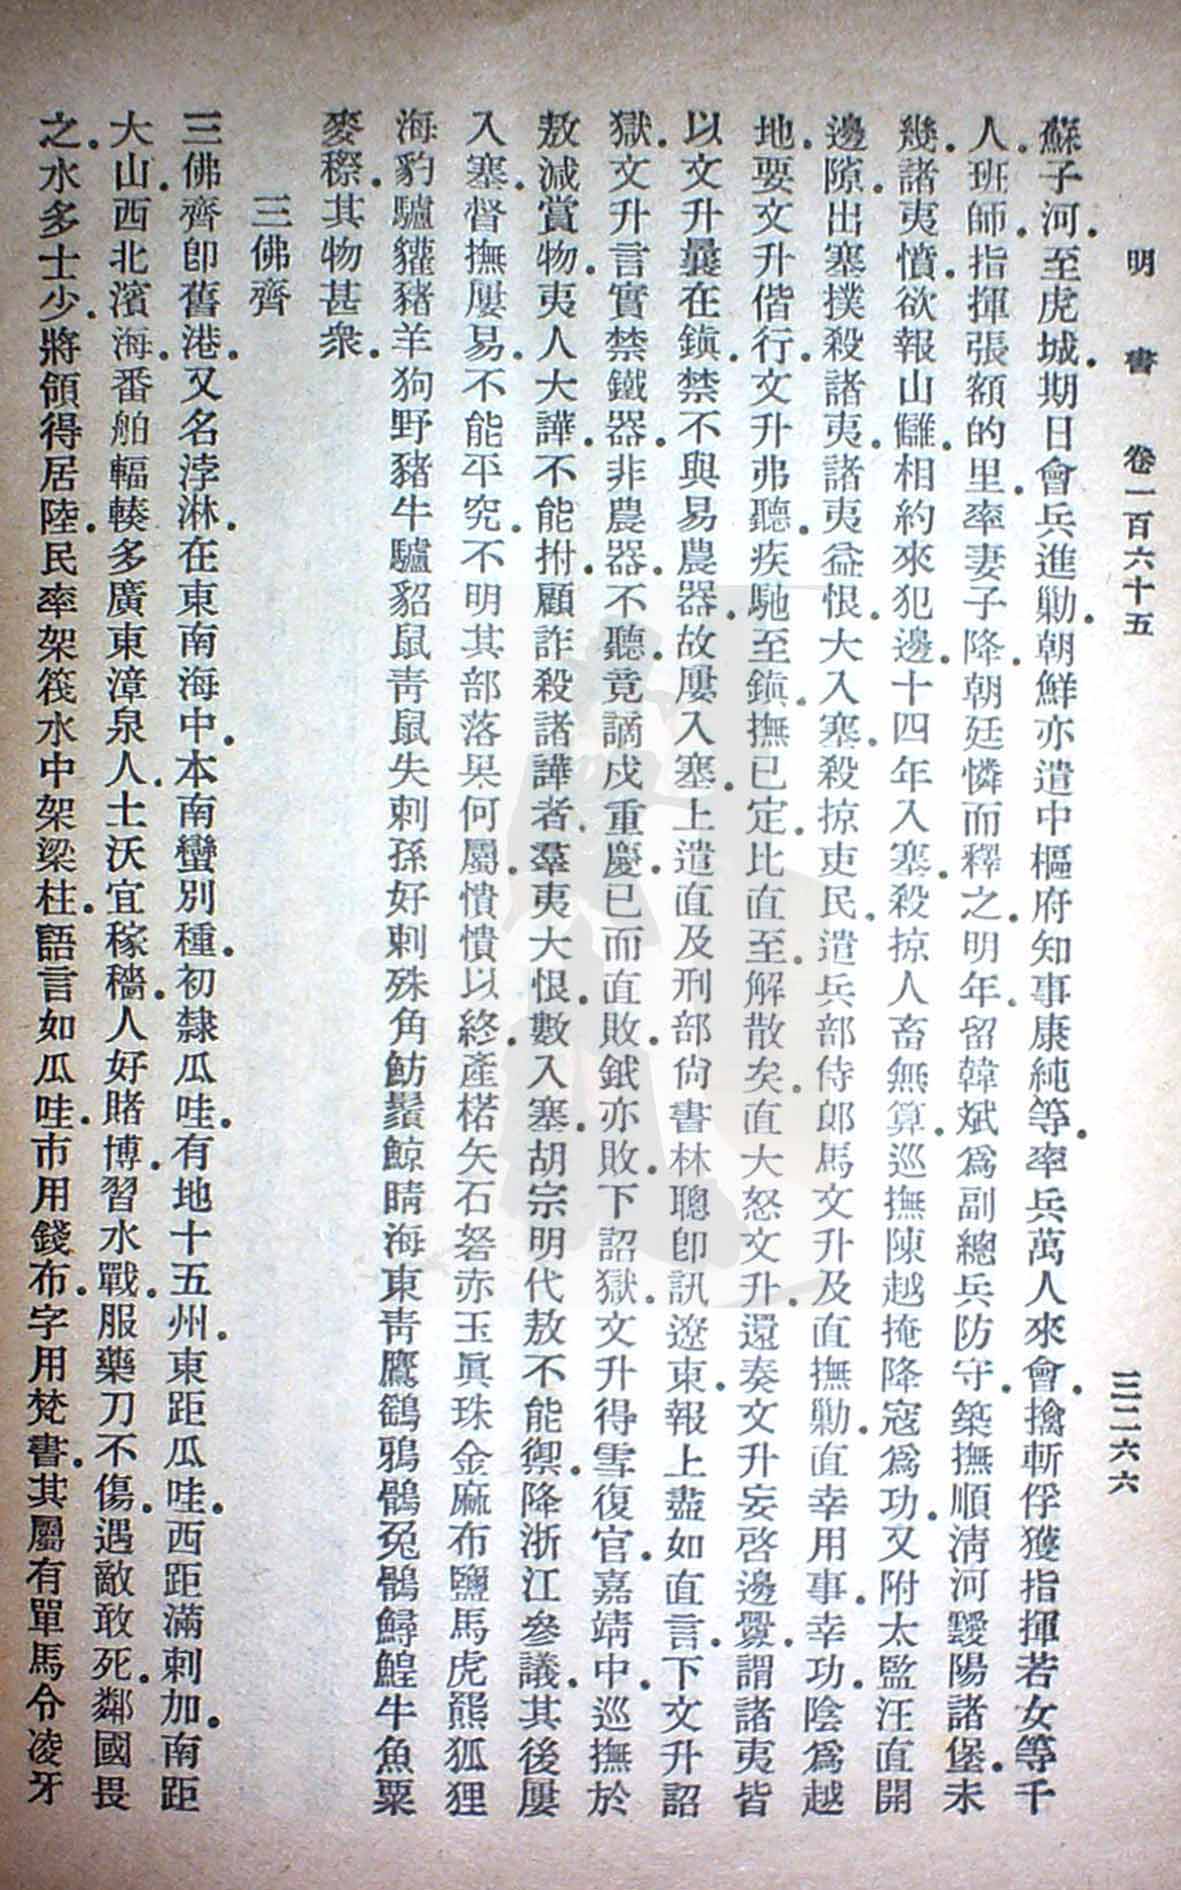 明書 卷一百六十五 三二六六
蘇子河。至虎城。期日會兵進勦。朝鮮亦遣中樞府知事康純等。率兵萬人來會。擒斬俘獲指揮若女等千
人。班師。指揮張額的里。率妻子降。朝廷憐而釋之。明年。留韓斌爲副總兵防守。築撫順淸河靉陽諸堡。未
幾。諸夷憤。欲報山讎。相約來犯邊。十四年入塞。殺掠人畜無算。巡撫陳越掩降寇爲功。又附太監汪直開
邊隙。出塞撲殺諸夷。諸夷益恨。大入塞。殺掠吏民。遣兵部侍郎馬文升及直撫勦。直幸用事。幸功。陰爲越
地。要文升偕行。文升弗聽。疾馳至鎭。撫已定。比直至。解散矣。直大怒文升。還奏文升妄啓邊釁。謂諸夷皆
以文升曩在鎭。禁不與易農器。故屢入塞。上遣直及刑部尙書林聰卽訊遼東。報上盡如直言。下文升詔
獄。文升言實禁鐵器。非農器。不聽。竟謫戍重慶。已而直敗。鉞亦敗。下詔獄。文升得雪復官。嘉靖中。巡撫於
敖減賞物。夷人大譁。不能拊。顧詐殺諸譁者。羣夷大恨。數入塞。胡宗明代敖不能禦。降浙江參議。其後屢
入塞。督撫屢易。不能平究。不明其部落果何屬。憒憒以終。產楛矢石砮赤玉眞珠金麻布鹽馬虎熊狐狸
海豹驢貛豬羊狗野豬牛驢貂鼠靑鼠失刺孫好刺殊角魴鬚鯨睛海東靑鷹鷂鴉鶻兔鶻鱘鰉牛魚粟
麥穄。其物甚衆。
三佛齊
三佛齊卽舊港。又名浡淋。在東南海中。本南蠻別種。初隸瓜哇。有地十五州。東距瓜哇。西距滿刺加。南距
大山。西北濱海。番舶輻輳。多廣東漳泉人。土沃宜稼穡。人好賭博。習水戰。服藥刀不傷。遇敵敢死。鄰國畏
之。水多土少。將領得居陸。民率架筏水中架梁柱。語言如瓜哇。市用錢布。字用梵書。其屬有單馬令凌牙